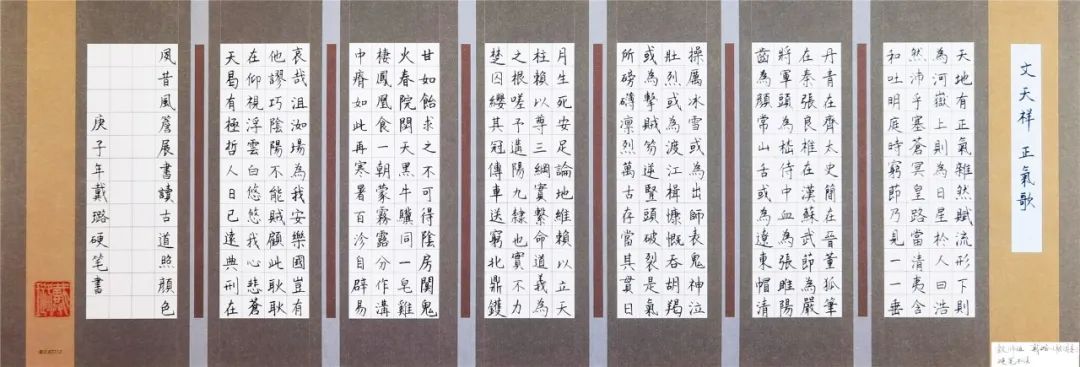 文天祥 正氣歌
天地有正氣雜然賦流形下則
為河嶽上則為日星於人曰浩
然沛乎塞蒼冥皇路當清夷含
和吐明庭時窮節乃見一一垂
丹青在齊太史簡在晉董狐筆
在秦張良椎在漢蘇武節為嚴
將軍頭為嵇侍中血為張睢陽
齒為顏常山舌或為遼東帽清
操厲冰雪或為出師表鬼神泣
壯烈或為渡江楫慷慨吞胡羯
或為擊賊笏逆豎頭破裂是氣
所磅礡凛烈萬古存當其貫日
月生死安足論地維賴以立天
柱賴以尊三綱實繫命道義為
之根嗟予遘陽九隸也實不力
楚囚纓其冠傳車送窮北鼎鑊
甘如飴求之不可得陰房闃鬼
火春院閟天黑牛驥同一皂雞
棲鳳凰食一朝蒙霧露分作溝
中瘠如此再寒暑百沴自辟易
哀哉沮洳場為我安樂國豈有
他謬巧陰陽不能賊顧此耿耿
在仰視浮雲白悠悠我心悲蒼
天曷有極哲人日已遠典刑在
風昔風簷展書讀古道照顏色
庚子年戴璐硬笔書